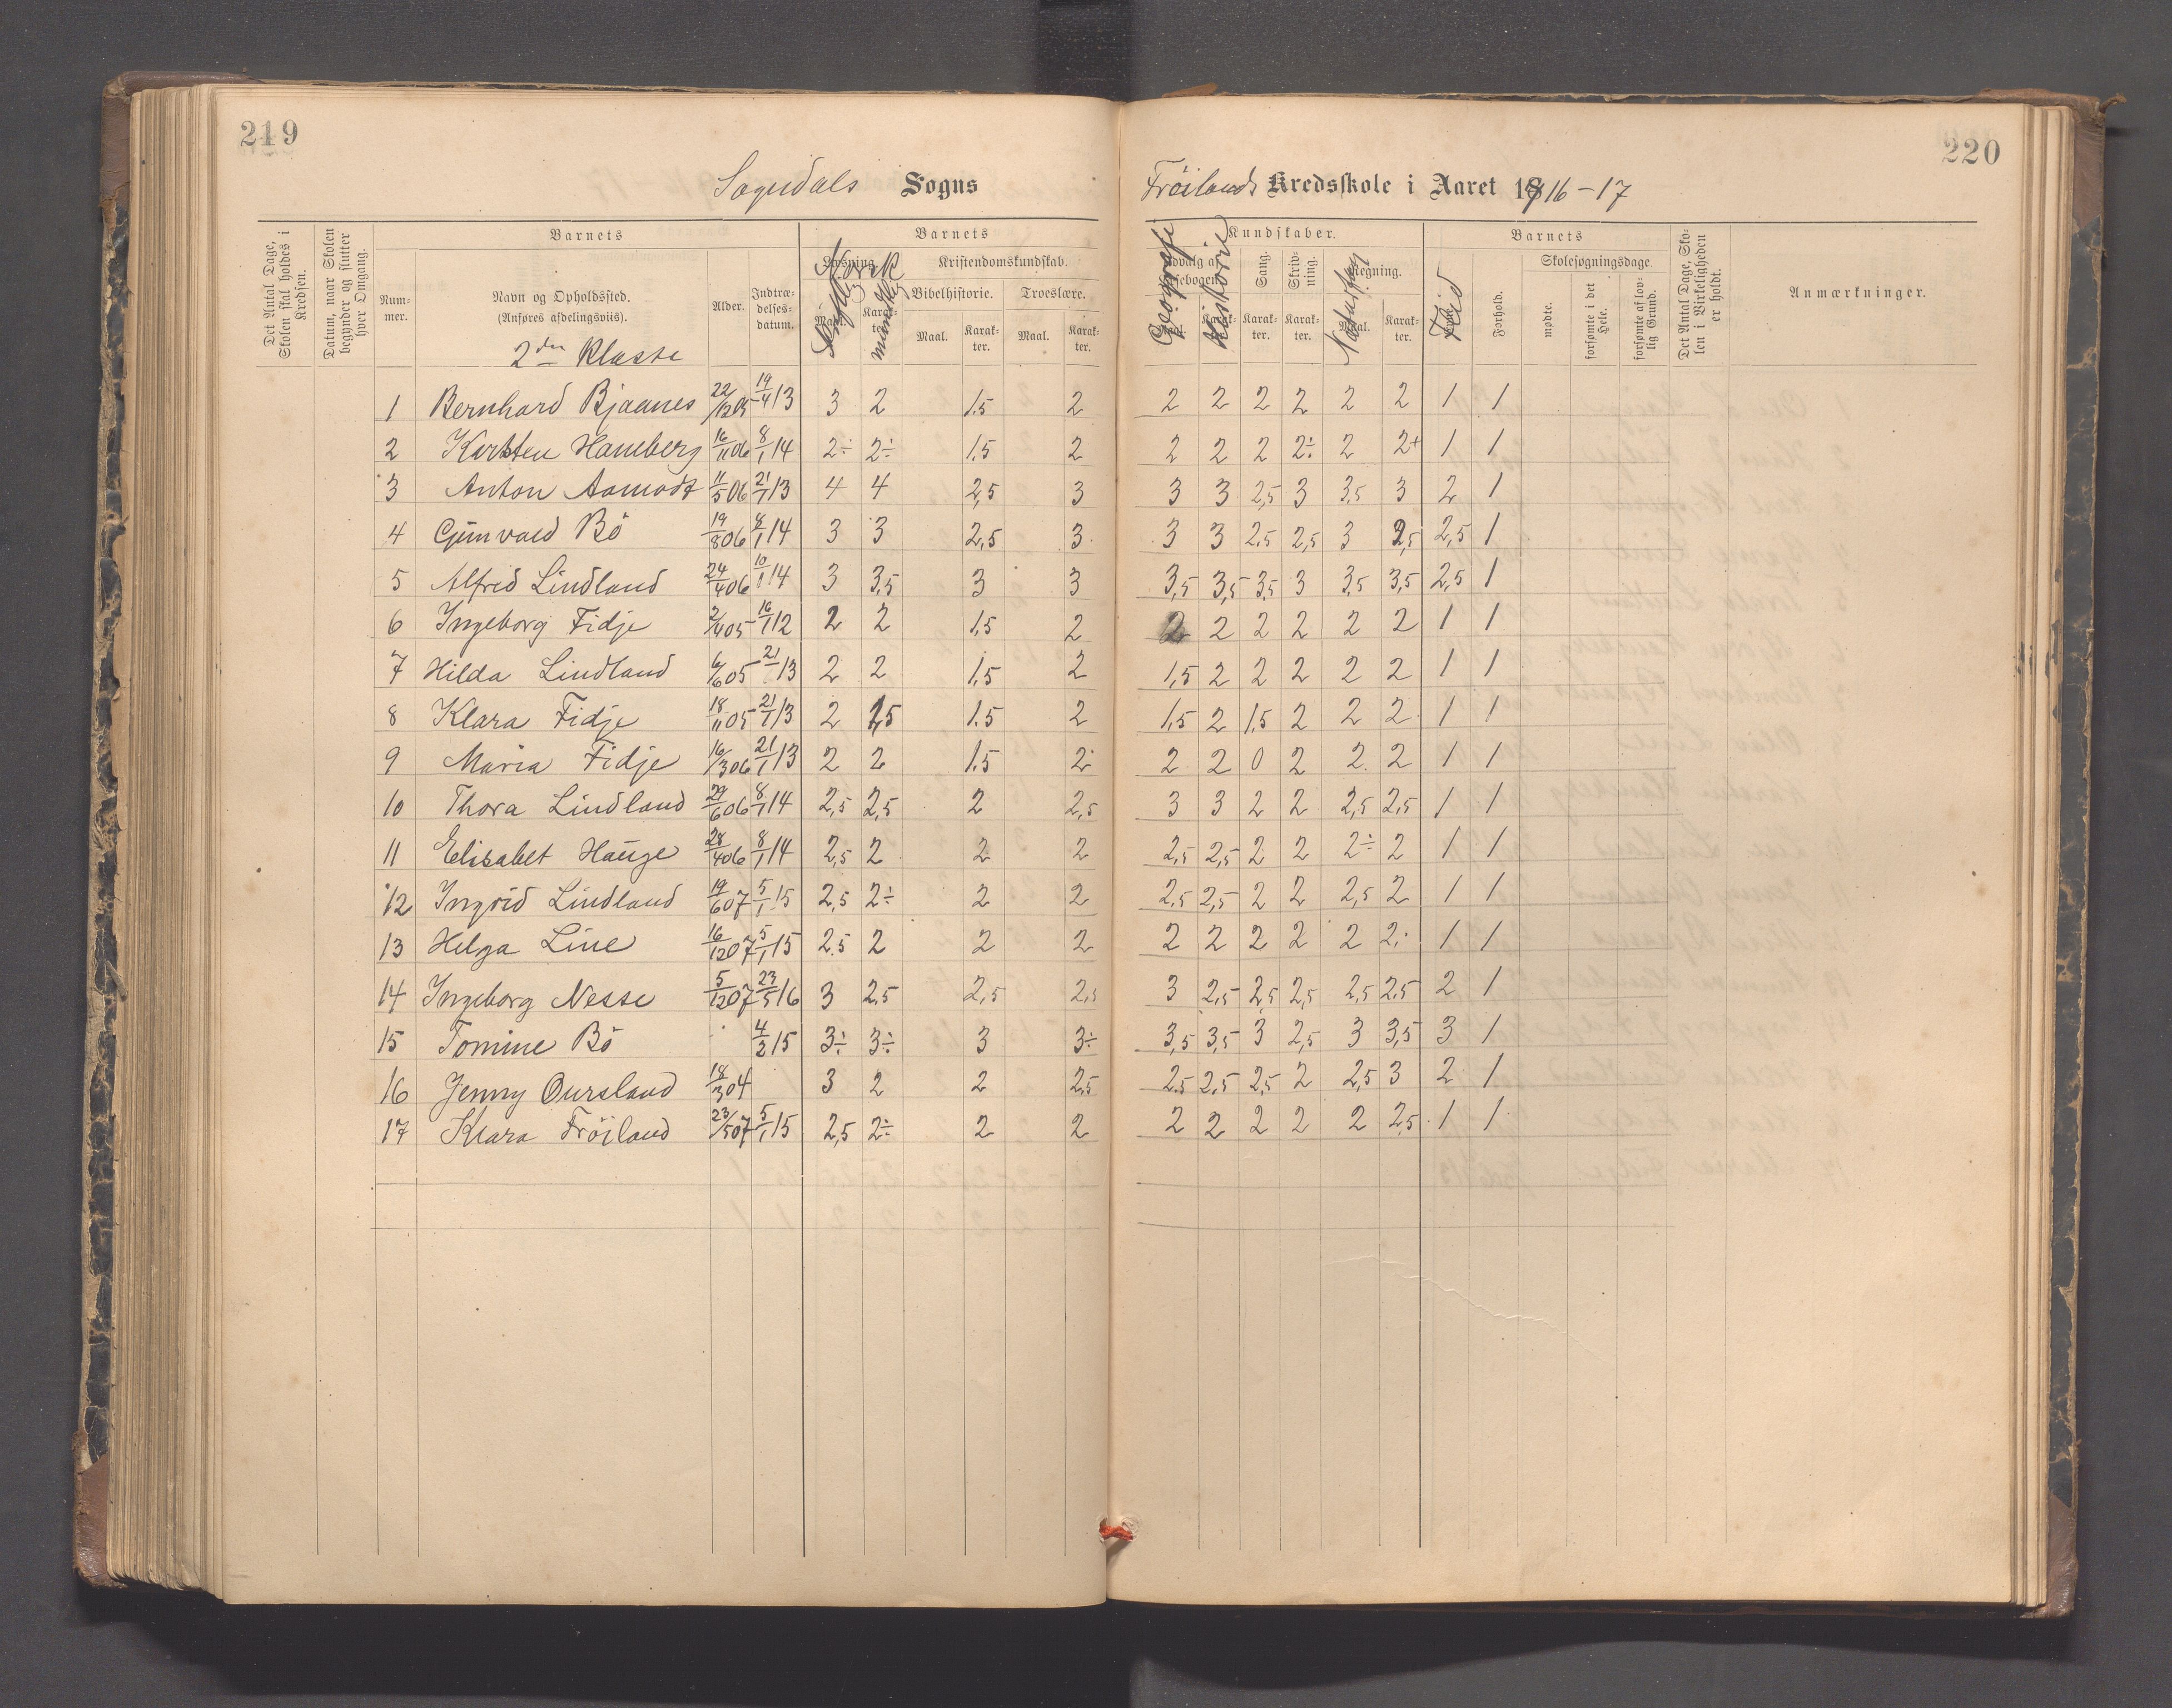 219
220
Sogndals Sogns
Frøilands Kredsskole i Aaret 1916-17
Det Antal Dage, Skolen skal holdes i Kredsen.
Datum, naar Skolen begynder og slutter hver Omgang.
Barnets
Nummer.
Navn og Opholdssted.
(Anføres afdelingsviis).
2den Klasse
Alder.
Indtrædelsesdatum.
Barnets
Læsning.
Norsk
Maal.
Karakter.
Skriftlig
mundtlig
Kristendomskundskab.
Bibelhistorie.
Troeslære.
Maal.
Karakter.
Maal.
Karakter.
Kundskaber.
Udvalg af Læsebogen.
Geografi
Historie
Maal.
Karakter.
Sang.
Karakter.
Skrivning.
Karakter.
Regning.
Naturfag
Maal.
Karakter.
Barnets
Flid
Forhold.
Skolesøgningsdage.
mødte.
forsømte i det Hele.
forsømte af lovlig Grund.
Det Antal Dage, Skolen i Virkeligheden er holdt.
Anmærkninger.
1 Bernhard Bjaanes 22/12 05 19/4 13 3 2 1.5 2 2 2 2 2 2 2 1 1
2 Karsten Hamberg 16/11 06 8/1 14 2÷ 2÷ 1.5 2 2 2 2 2÷ 2 2+ 1 1
3 Anton Aamodt 11/5 06 21/1 13 4 4 2,5 3 3 3 2,5 3 3,5 3 2 1
4 Gunvald Bö 19/8 06 8/1 14 3 3 2,5 3 3 3 2,5 2,5 3 2,5 2,5 1
5 Alfred Lindland 24/4 06 10/1 14 3 3,5 3 3 3,5 3,5 3,5 3 3,5 3,5 2,5 1
6 Ingeborg Fidje 2/4 05 16/1 12 2 2 1,5 2 2 2 2 2 2 2 1 1
7 Hilda Lindland 6/6 05 21/ 13 2 2 1,5 2 1,5 2 2 2 2 2 1 1
8 Klara Fidje 18/11 05 21/1 13 2 1,5 1.5 2 1,5 2 1,5 2 2 2 1 1
9 Maria Fidje 16/3 06 21/1 13 2 2 1.5 2 2 2 0 2 2 2 1 1
10 Thora Lindland 29/6 06 8/1 14 2,5 2,5 2 2,5 3 3 2 2 2,5 2,5 1 1
11 Elisabet Hauge 28/4 06 8/1 14 2,5 2 2 2 2,5 2,5 2 2 2÷ 2 1 1
12 Ingrid Lindland 19/6 07 5/1 15 2,5 2÷ 2 2 2,5 2,5 2 2 2,5 2 1 1
13 Helga Line 16/12 07 5/1 15 2.5 2 2 2 2 2 2 2 2 2÷ 1 1
14 Ingeborg Nesse 5/12 07 23/5 16 3 2,5 2,5 2,5 3 2,5 2,5 2,5 2,5 2,5 2 1
15 Tomine Bö 4/2 15 3÷ 3÷ 3 3÷ 3,5 3,5 3 2,5 3 3,5 3 1
16 Jenny Oursland 18/3 04 3 2 2 2,5 2.5 2,5 2,5 2 2,5 3 2 1
17 Klara Fröiland 23/5 07 5/1 15 2,5 2÷ 2 2 2 2 2 2 2 2,5 1 1